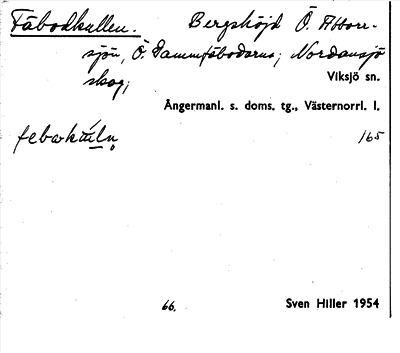 Fäbodkullen. Bergshöjd Ö. Abborr-
sjön, Ö. Dammfäbodarna; Nordansjö
skog;
Viksjö sn.
Ångermanl. s. doms. tg., Västernorrl. l.
165
66. Sven Hiller 1954